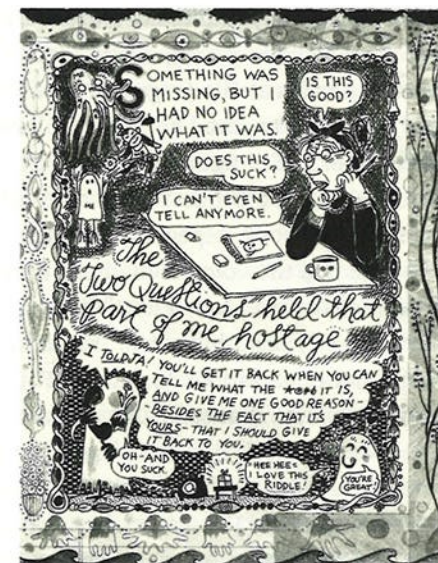 SOMETHING WAS
MISSING, BUT I
HAD NO IDEA
WHAT IT WAS.
IS THIS
GOOD?
DOES THIS
SUCK?
I CAN'T EVEN
TELL ANYMORE.
ME
The
Two Questions held that
part of me hostage
I TOLDJA! YOU'LL GET IT BACK WHEN YOU CAN
TELL ME WHAT THE *@#! IT IS,
AND GIVE ME ONE GOOD REASON-
BESIDES THE FACT THAT IT'S
YOURS-THAT I SHOULD GIVE
IT BACK TO YOU.
OH-AND
YOU SUCK.
"HEE HEE"
I LOVE THIS
RIDDLE!
YOU'RE
GREAT!